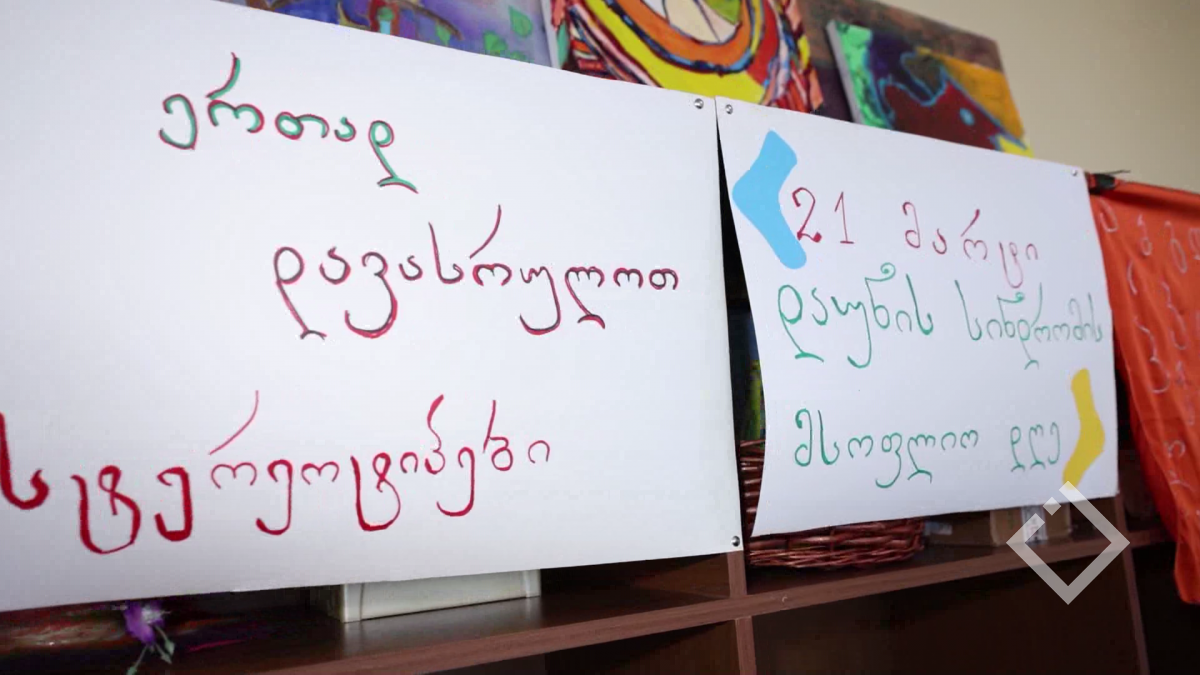 ერთად
დავასრულოთ
სტერეოტიპები
21 მარტი
დაუნის სინდრომის
მსოფლიო დღე